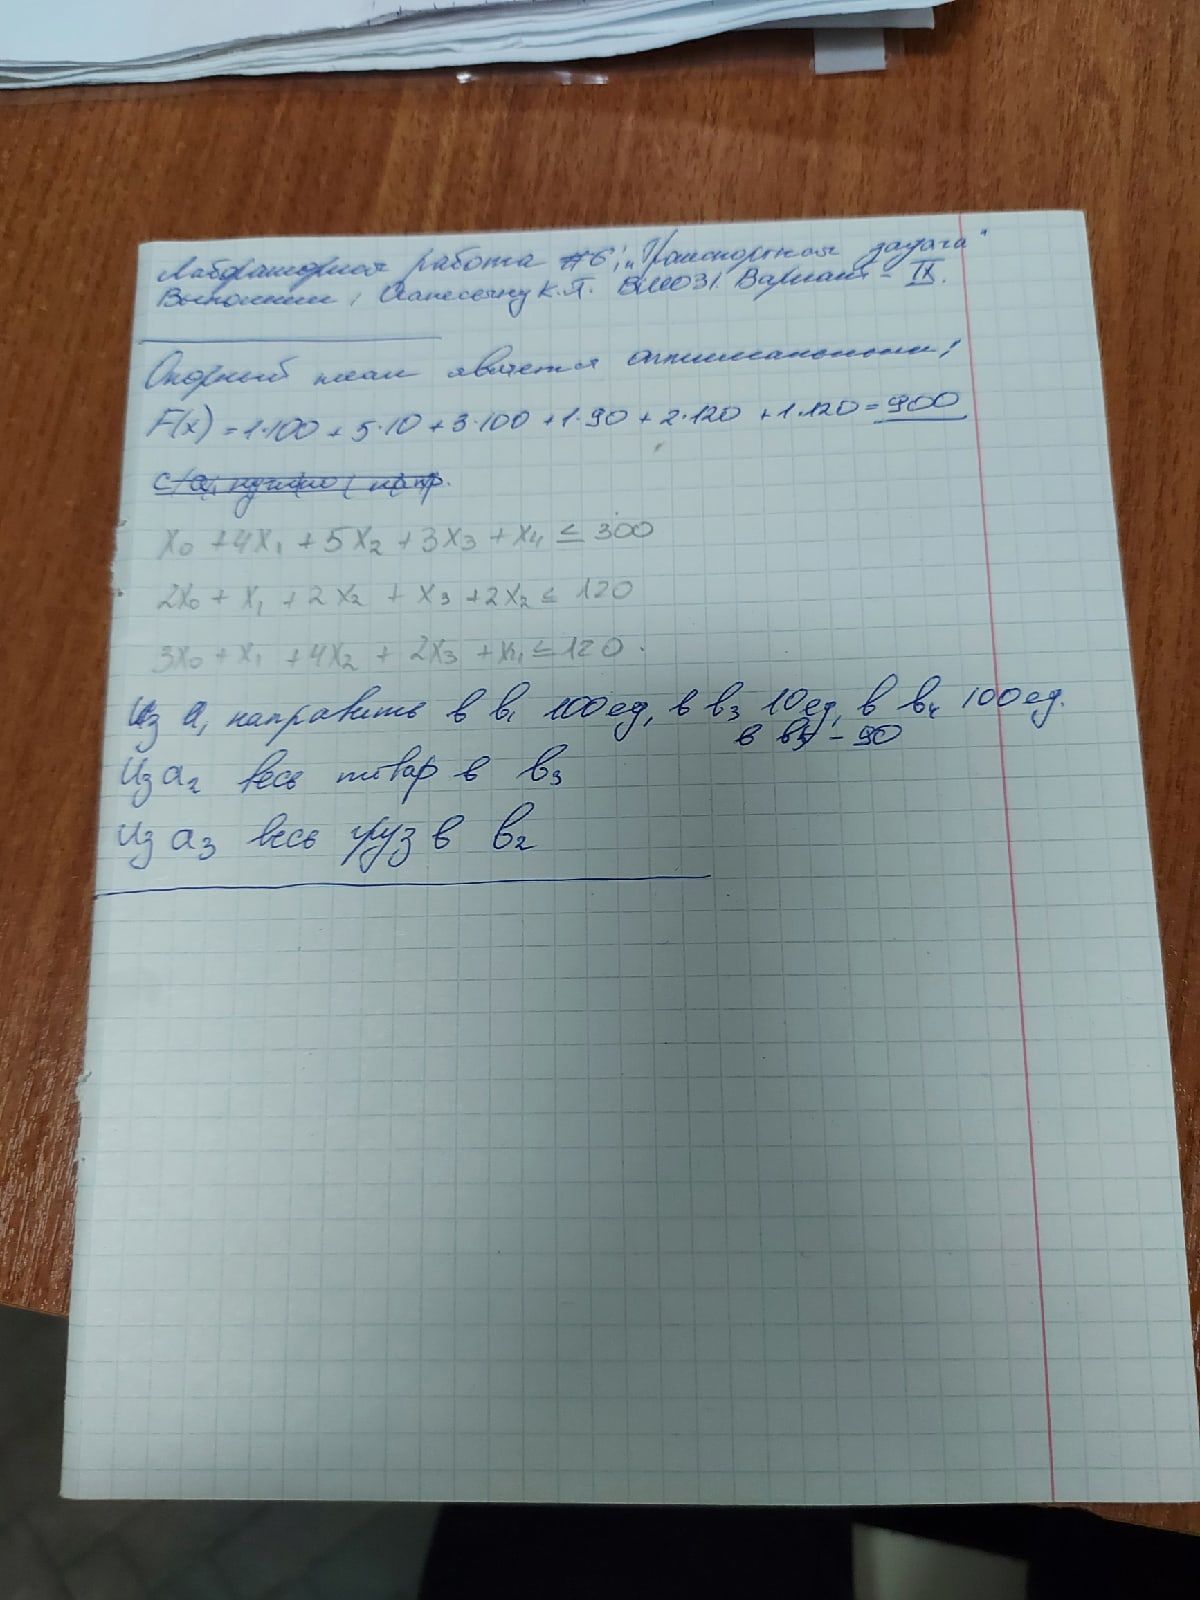 Лабораторная работа #6; "Транспортная задача"
Выполнил: К.П. Вариант - IX.
Опорный план является оптимальным!
F(x) = 1·100 + 5·10 + 3·100 + 1·90 + 2·120 + 1·120 = 900
x₀ + 4x₁ + 5x₂ + 3x₃ + x₄ ≤ 300
2x₀ + x₁ + 2x₂ + x₃ + 2x₂ ≤ 120
3x₀ + x₁ + 4x₂ + 2x₃ + x₁ ≤ 120.
Из a₁ направить в b₁ 100 ед, в b₃ 10 ед, в b₄ 100 ед.
в b₅ - 90
Из a₂ весь товар в b₃
Из a₃ весь груз в b₂